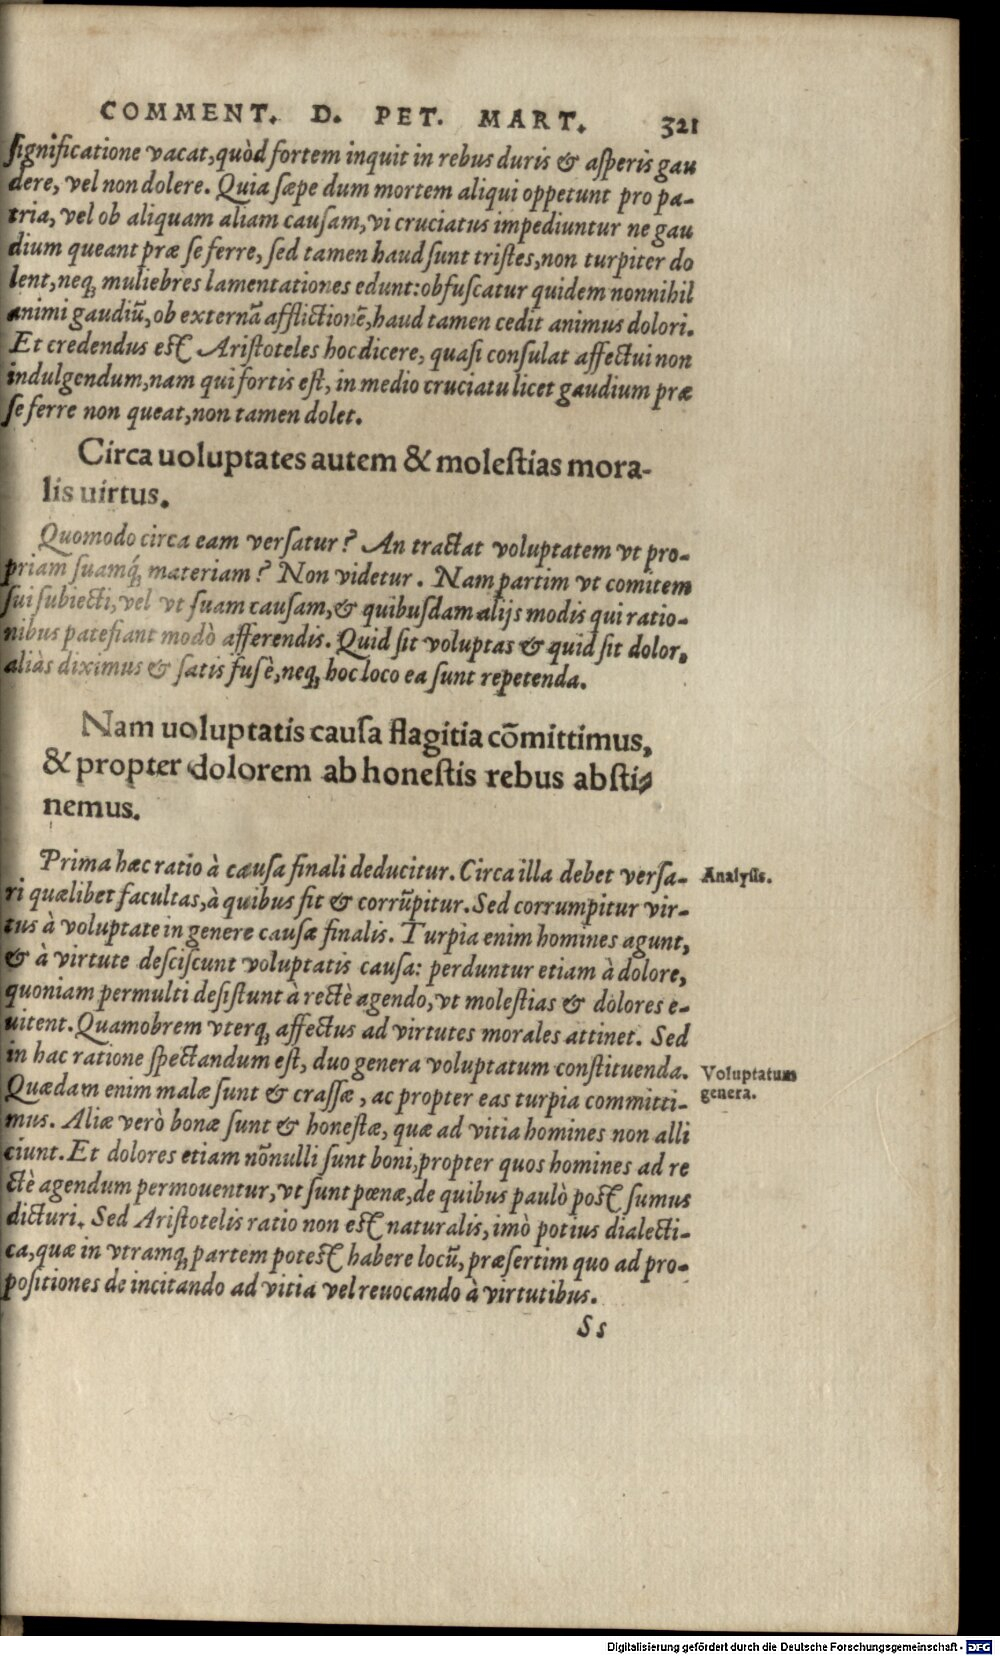 COMMENT. D. PET. MART. 321
significatione vacat, quòd fortem inquit in rebus duris & asperis gau
dere, vel non dolere. Quia sæpe dum mortem aliqui oppetunt pro pa-
tria, vel ob aliquam aliam causam, vi cruciatus impediuntur ne gau
dium queant præ se ferre, sed tamen haud sunt tristes, non turpiter do
lent, neq; muliebres lamentationes edunt: obfuscatur quidem nonnihil
animi gaudiũ, ob externã afflictionẽ, haud tamen cedit animus dolori.
Et credendus est Aristoteles hoc dicere, quasi consulat affectui non
indulgendum, nam qui fortis est, in medio cruciatu licet gaudium præ
se ferre non queat, non tamen dolet.
Circa uoluptates autem & molestias mora-
lis uirtus.
Quomodo circa eam versatur? An tractat voluptatem vt pro-
priam suamq́; materiam? Non videtur. Nam partim vt comitem
sui subiecti, vel vt suam causam, & quibusdam alijs modis qui ratio-
nibus patefiant modò afferendis. Quid sit voluptas & quid sit dolor,
aliàs diximus & satis fusè, neq; hoc loco ea sunt repetenda.
Nam uoluptatis causa flagitia cõmittimus,
& propter dolorem ab honestis rebus absti-
nemus.
Prima hæc ratio à causa finali deducitur. Circa illa debet versa-
Analysis.
ri quælibet facultas, à quibus fit & corrũpitur. Sed corrumpitur vir-
tus à voluptate in genere causæ finalis. Turpia enim homines agunt,
& à virtute desciscunt voluptatis causa: perduntur etiam à dolore,
quoniam permulti desistunt à rectè agendo, vt molestias & dolores e-
uitent. Quamobrem vterq; affectus ad virtutes morales attinet. Sed
in hac ratione spectandum est, duo genera voluptatum constituenda.
Voluptatum
genera.
Quædam enim malæ sunt & crassæ, ac propter eas turpia committi-
mus. Aliæ verò bonæ sunt & honestæ, quæ ad vitia homines non alli
ciunt. Et dolores etiam nõnulli sunt boni, propter quos homines ad re
ctè agendum permouentur, vt sunt pœnæ, de quibus paulò post sumus
dicturi. Sed Aristotelis ratio non est naturalis, imò potius dialecti-
ca, quæ in vtramq; partem potest habere locũ, præsertim quo ad pro-
positiones de incitando ad vitia vel reuocando à virtutibus.
Ss
Digitalisierung gefördert durch die Deutsche Forschungsgemeinschaft - DFG